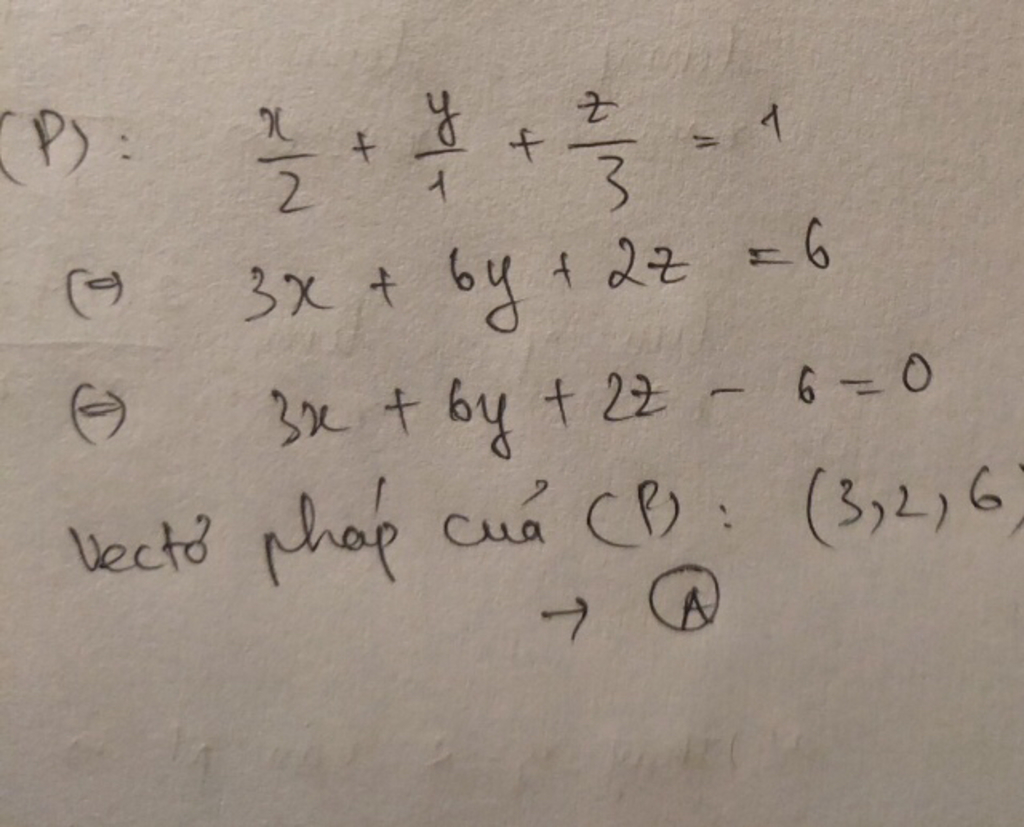 (P): x/2 + y/1 + z/3 = 1
(=) 3x + 6y + 2z = 6
(=) 3x + 6y + 2z - 6 = 0
Vectơ pháp của (P): (3,2,6)
→ Ⓐ